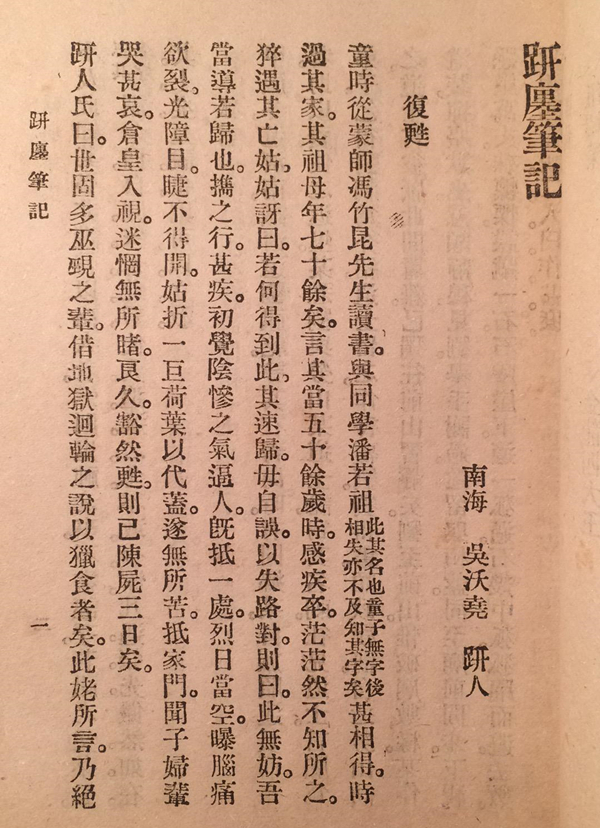 趼廛筆記
南海　吳沃堯　趼人
復甦
童時從蒙師馮竹昆先生讀書。與同學潘若祖此其名也童子無字後相失亦不及知其字矣甚相得。時
過其家。其祖母年七十餘矣。言其當五十餘歲時。感疾卒。茫茫然不知所之。
猝遇其亡姑。姑訝曰。若何得到此。其速歸。毋自誤。以失路對。則曰。此無妨。吾
當導若歸也。攜之行。甚疾。初覺陰慘之氣逼人。旣抵一處。烈日當空。曝腦痛
欲裂。光障目。睫不得開。姑折一巨荷葉以代蓋。遂無所苦。抵家門。聞子婦輩
哭甚哀。倉皇入視。迷惘無所睹。良久。豁然甦。則已陳屍三日矣。
趼人氏曰。世固多巫覡之輩。借地獄迴輪之說以獵食者矣。此姥所言。乃絕
趼廛筆記
一